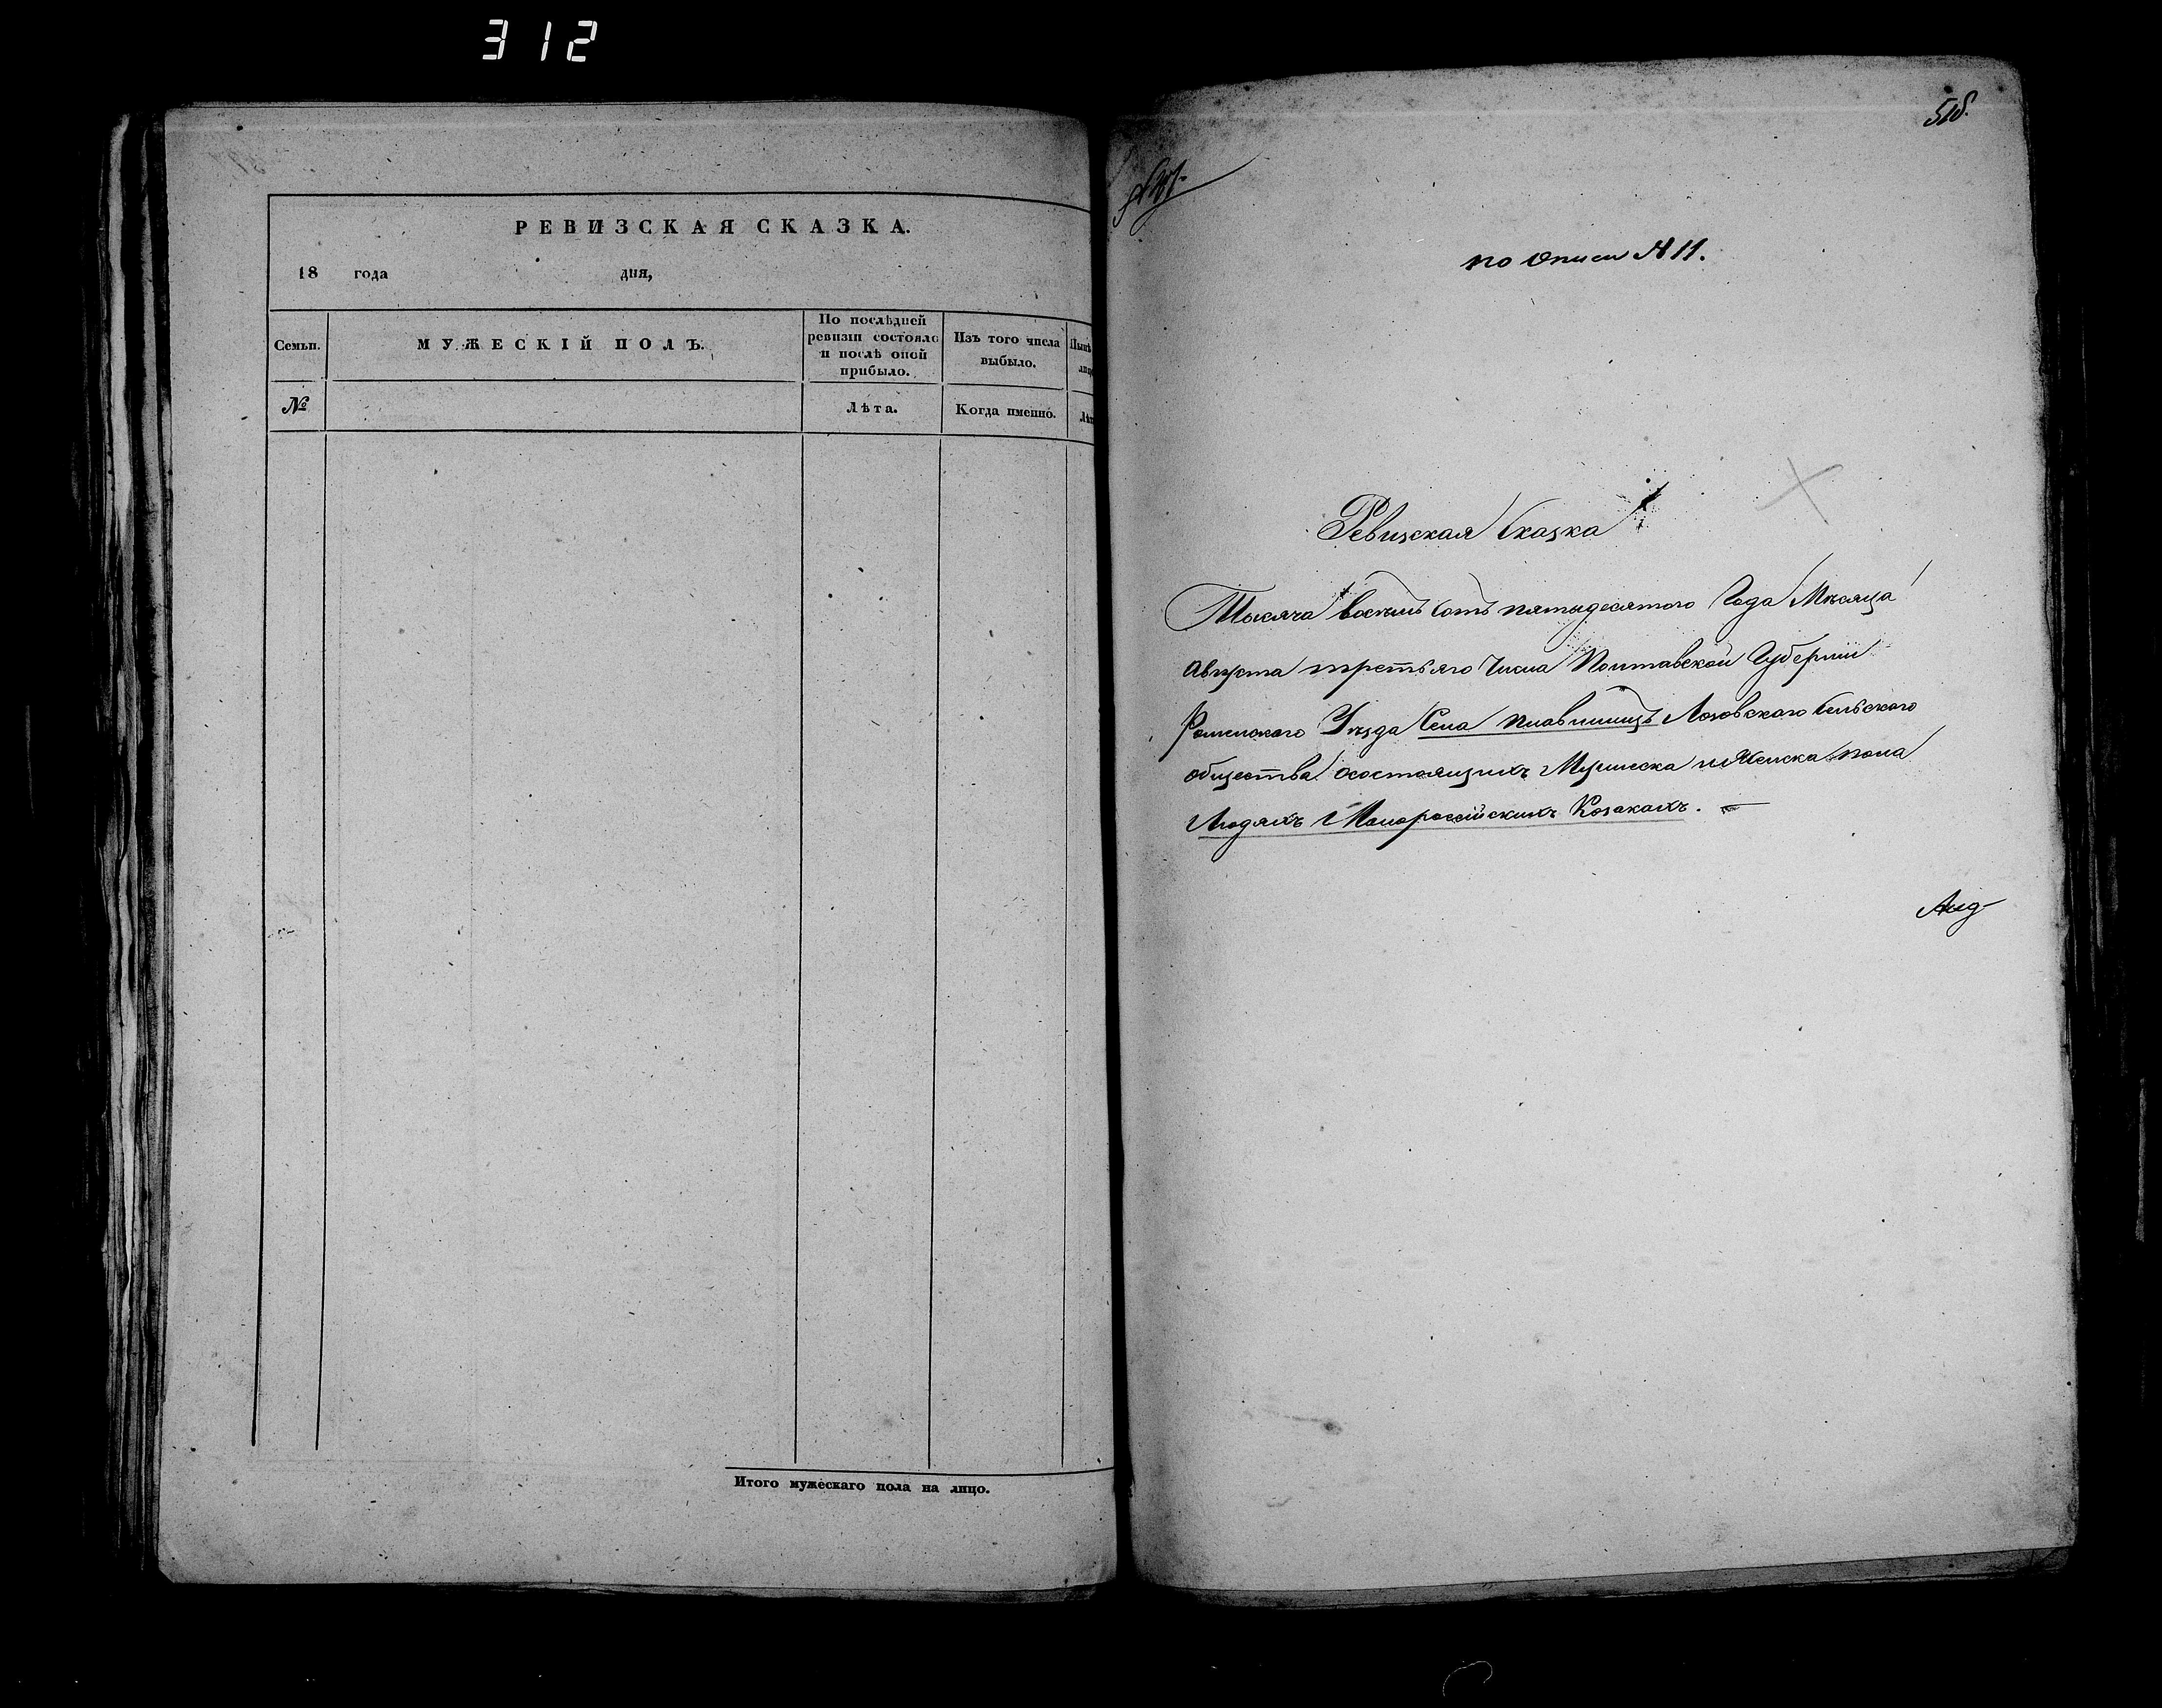 312
РЕВИЗСКАЯ СКАЗКА.
18 года дня,
Семьи. МУЖЕСКІЙ ПОЛЪ.
По послѣдней
ревизіи состояло
и послѣ оной
прибыло.
Изъ того числа
выбыло.
№
Лѣта.
Когда именно.
Итого мужескаго пола на лицо.
518.
по Описи № 11.
Ревизская Сказка
Тысяча восемь сотъ пятьдесятого Года Мѣсяца
Августа третьяго числа Полтавской Губерніи
Роменского Уѣзда Села Плавинищъ Лозовского Сельского
общества осостоящихъ Мужеска и Женска пола
Людяхъ Малоросійскихъ Козакахъ.